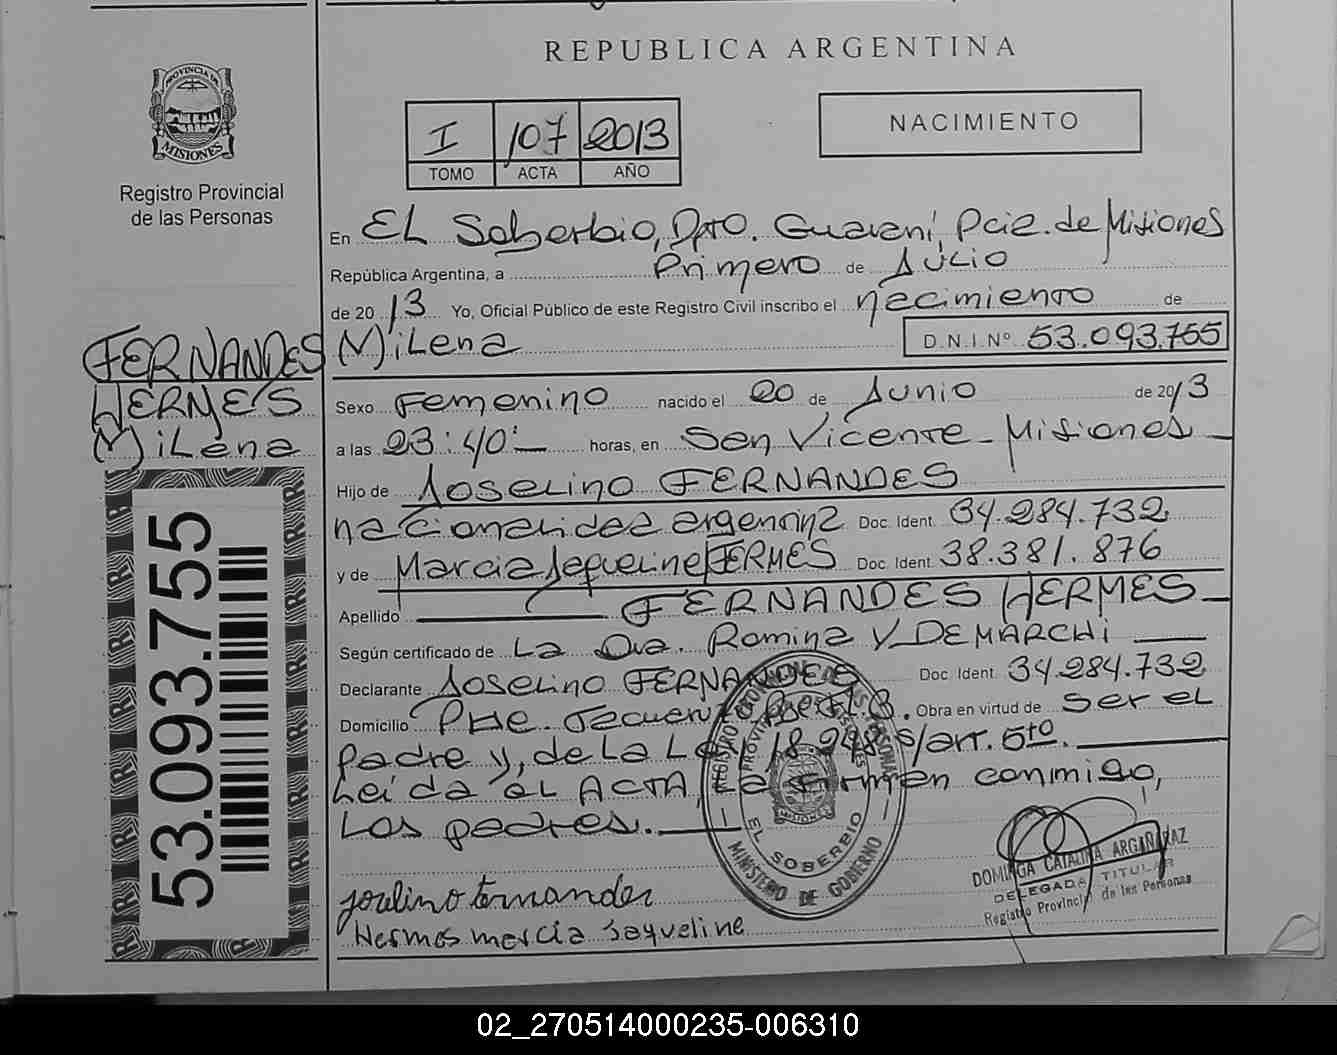 REPUBLICA ARGENTINA
PROVINCIA DE
MISIONES
Registro Provincial
de las Personas
I 107 2013
TOMO ACTA AÑO
NACIMIENTO
En EL Soberbio, Dpto. Guaraní, Pcia. de Misiones
República Argentina, a Primero de Julio
de 2013 Yo, Oficial Público de este Registro Civil inscribo el nacimiento de
Milena D.N.I.Nº 53.093.755
FERNANDES
HERMES
Milena
53.093.755
Sexo Femenino nacido el 20 de Junio de 2013
a las 23:40:- horas, en San Vicente - Misiones -
Hijo de Joselino FERNANDES
nacionalidad argentina Doc. Ident. 34.284.732
y de Marcia Jaqueline HERMES Doc. Ident. 38.381.876
Apellido FERNANDES HERMES
Según certificado de La Dra. Romina Y DEMARCHI
Declarante Joselino FERNANDES Doc. Ident. 34.284.732
Domicilio Pje. Obra en virtud de ser el
padre y, de La Ley 18.248 s/art. 5to.
Leída el ACTA, La firman conmigo,
Los padres.
REGISTRO PROVINCIAL DE LAS PERSONAS
PROVINCIA DE MISIONES
MISIONES
EL SOBERBIO
MINISTERIO DE GOBIERNO
joselino fernandes
Hermes marcia Jaqueline
DOMINGA CATALINA ARGAÑARAZ
DELEGADA TITULAR
Registro Provincial de las Personas
02_270514000235-006310